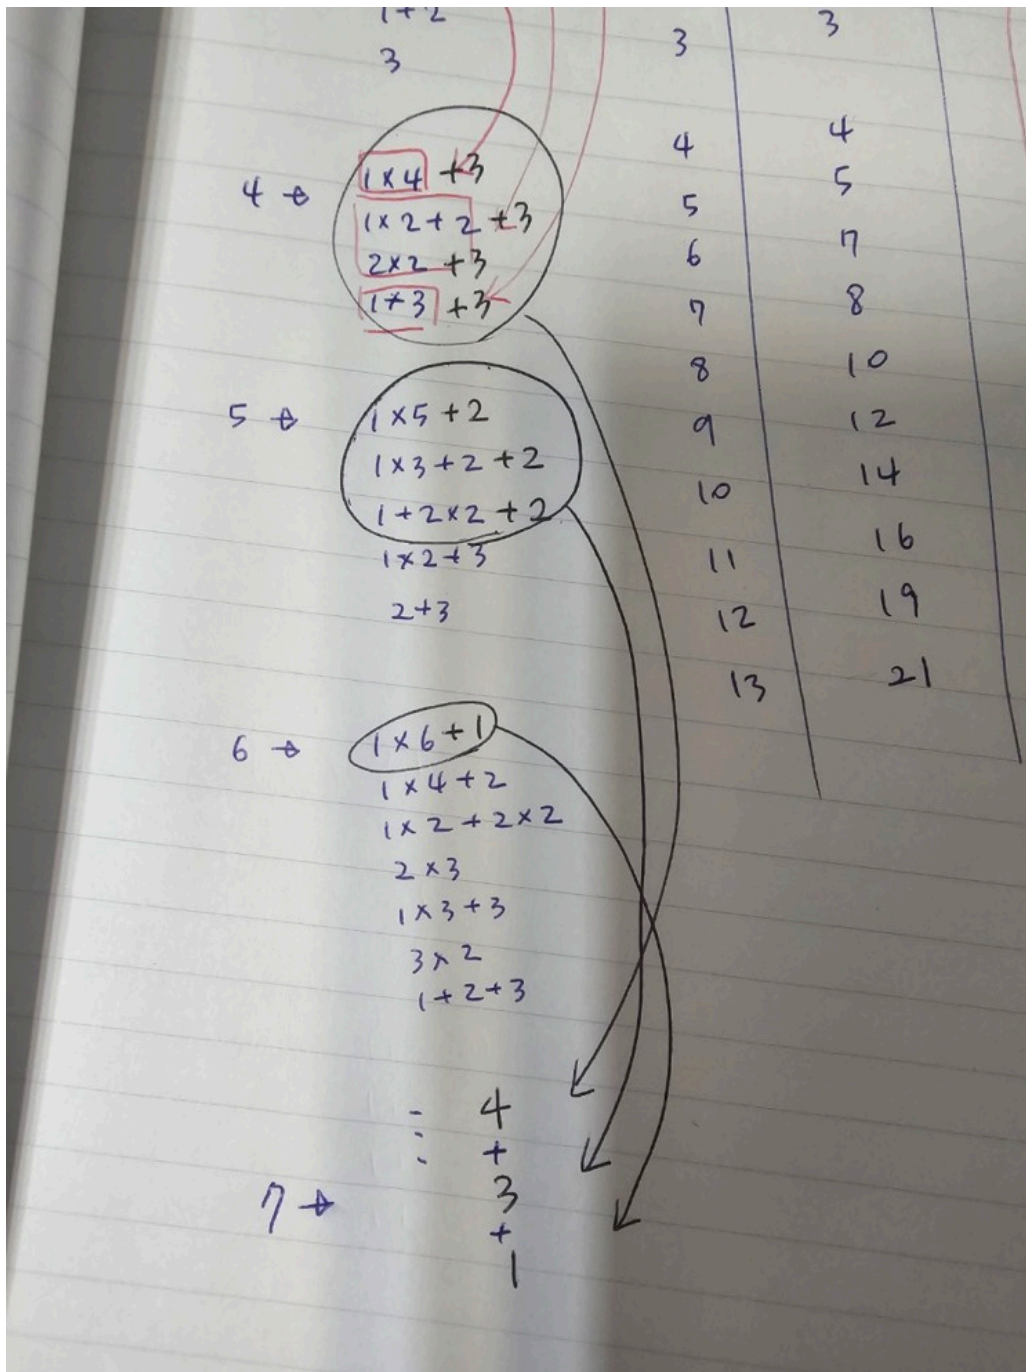 1+2
3
4 → 1×4 +3
1×2+2+3
2×2 +3
1+3 +3
5 → 1×5+2
1×3+2+2
1+2×2+2
1×2+3
2+3
6 → 1×6+1
1×4+2
1×2+2×2
2×3
1×3+3
3×2
1+2+3
4
+
7 → 3
+
1
3 3
4 4
5 5
6 7
7 8
8 10
9 12
10 14
11 16
12 19
13 21